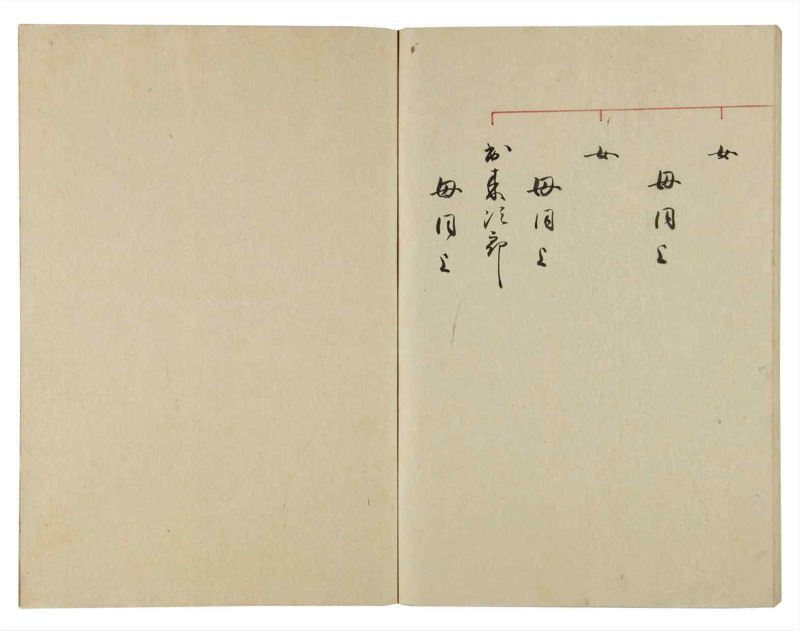 女
母同上
女
母同上
次郎
母同上